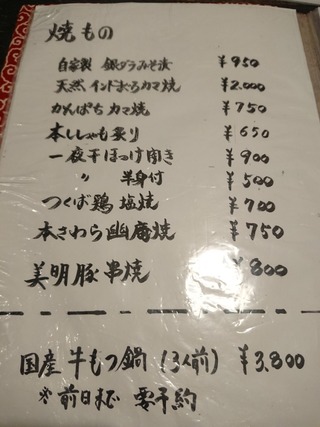 焼もの
自家製 銀ダラみそ漬 ¥950
天然 インドまぐろカマ焼 ¥2,000
かんぱち カマ焼 ¥750
本ししゃも炙り ¥650
一夜干ほっけ開き ¥900
〃 半身付 ¥500
つくば鶏 塩焼 ¥700
本さわら幽庵焼 ¥750
美明豚串焼 ¥800
国産 牛もつ鍋 (3人前) ¥3,800
※前日まで 要予約